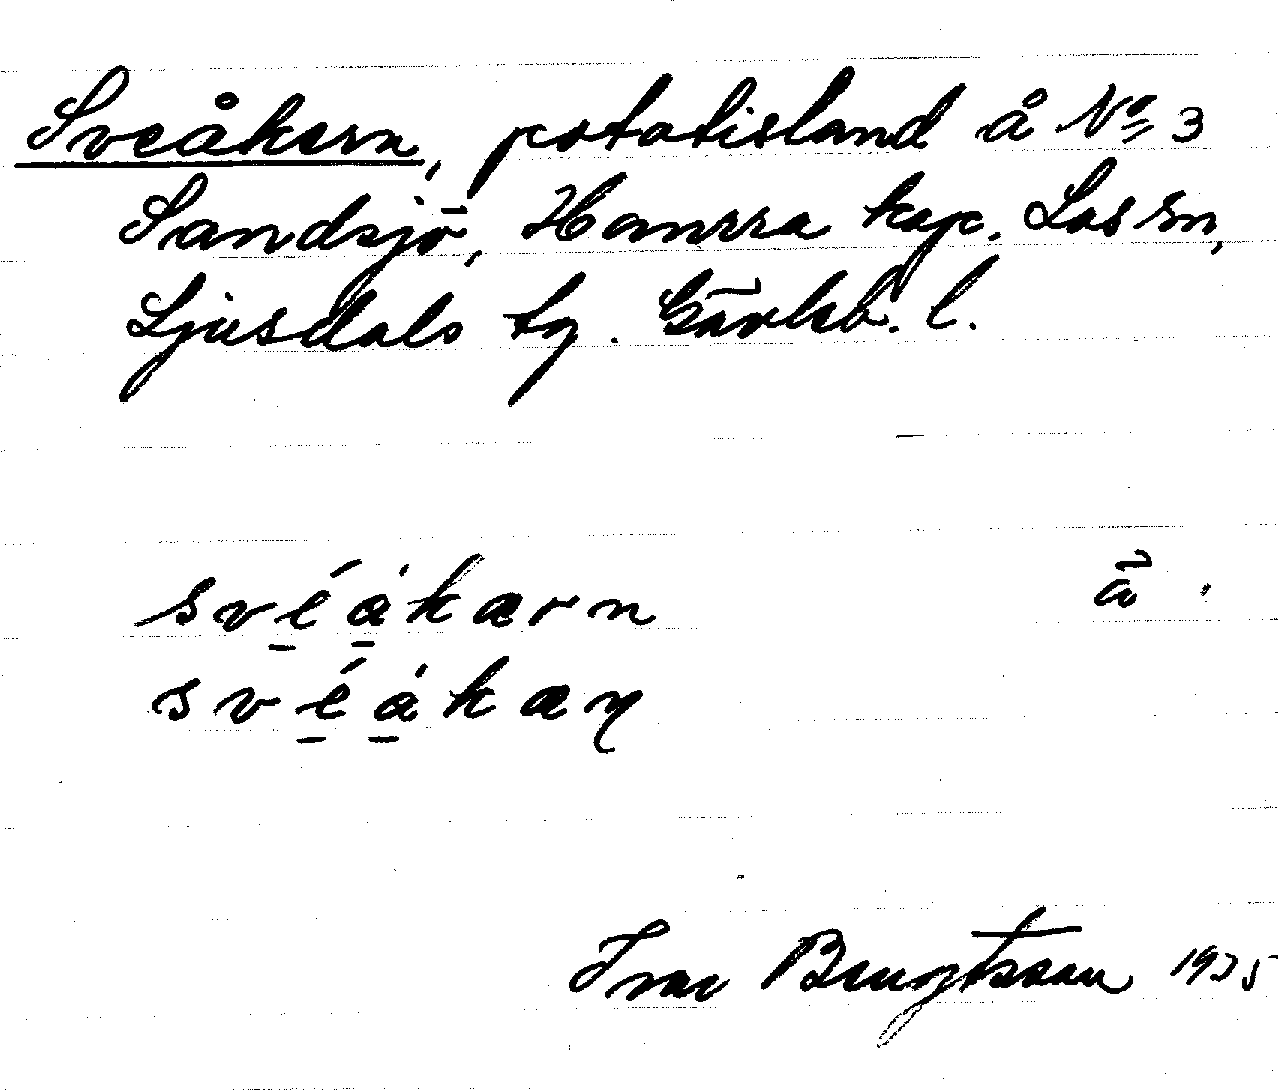 Sveåkern, potatisland å No 3
Sandsjö, Hamrra kap. Los sn,
Ljusdals tg. Gävleb. l.
svéákærn ä
svéákæɳ
Ivar Bengtsson 1925